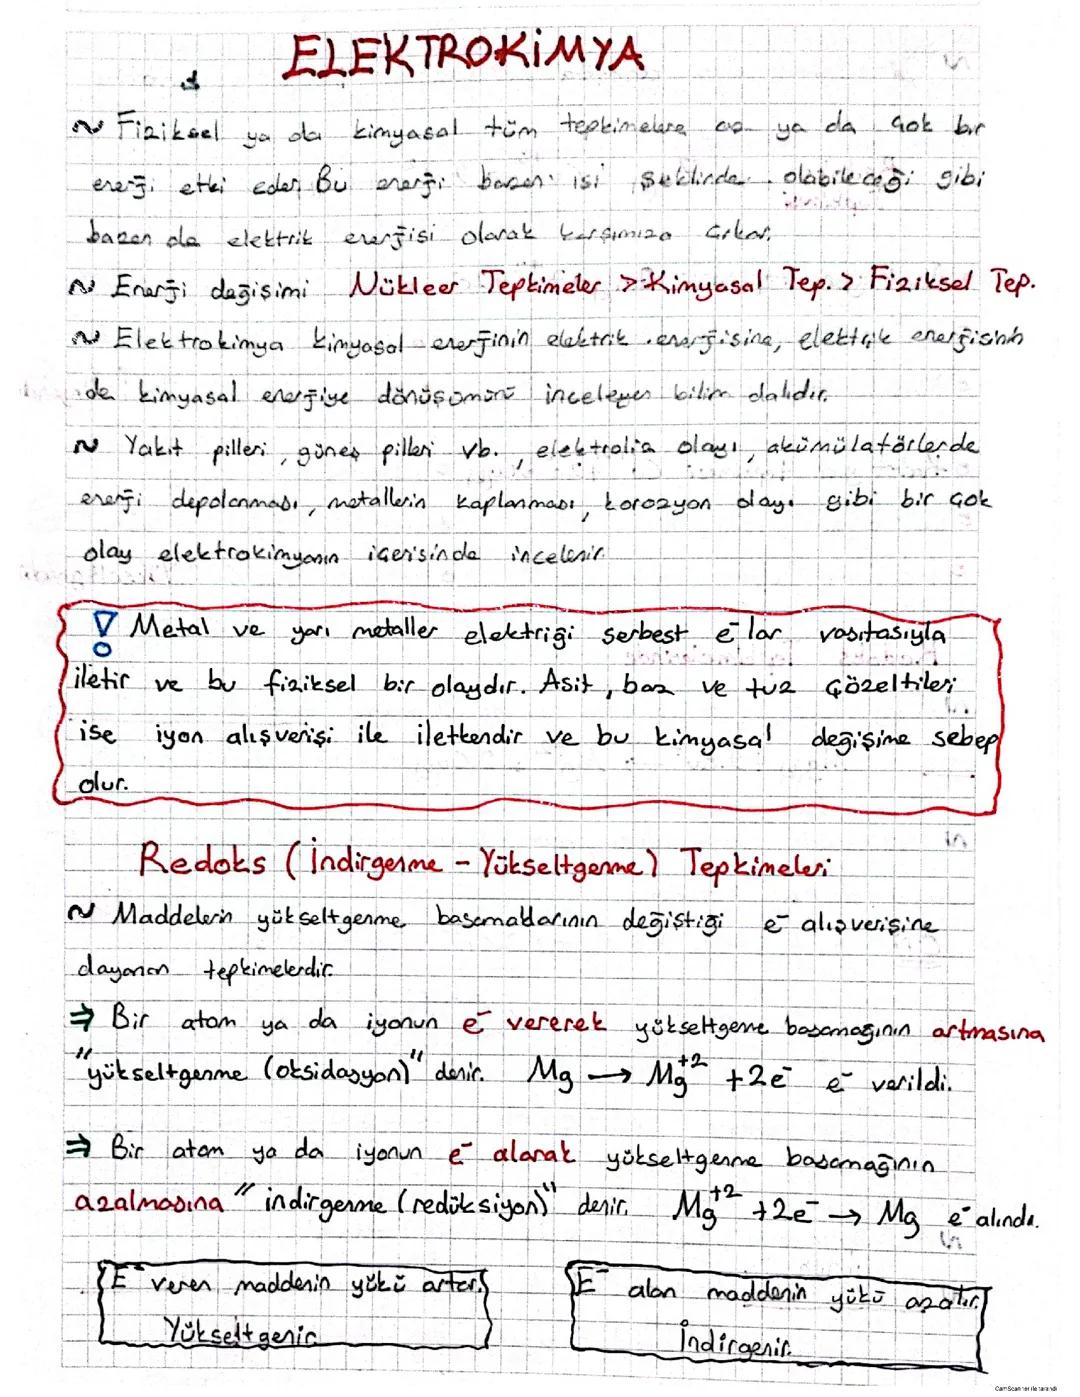 ELEKTROKİMYA
~ Fiziksel ya da kimyasal tüm tepkimelere az ya da çok bir
enerji etki eder. Bu enerji bazen ısı şeklinde olabileceği gibi
bazen da elektrik enerjisi olarak karşımıza çıkar.
~ Enerji değişimi Nükleer Tepkimeler > Kimyasal Tep. > Fiziksel Tep.
~ Elektrokimya kimyasal enerjinin elektrik enerjisine, elektrik enerjisinin
de kimyasal enerjiye dönüşümünü inceleyen bilim dalıdır.
~ Yakıt pilleri, güneş pilleri vb., elektroliz olayı, akümülatörlerde
enerji depolanması, metallerin kaplanması, korozyon olayı gibi bir çok
olay elektrokimyanın içerisinde incelenir.
! Metal ve yarı metaller elektriği serbest e⁻ lar vasıtasıyla
iletir ve bu fiziksel bir olaydır. Asit, baz ve tuz çözeltileri
ise iyon alışverişi ile iletkendir ve bu kimyasal değişime sebep
olur.
Redoks (İndirgenme - Yükseltgenme) Tepkimeleri
~ Maddelerin yükseltgenme basamaklarının değiştiği e⁻ alışverişine
dayanan tepkimelerdir.
⇒ Bir atom ya da iyonun e⁻ vererek yükseltgenme basamağının artmasına
"yükseltgenme (oksidasyon)" denir. Mg → Mg⁺² +2e⁻ e⁻ verildi.
⇒ Bir atom ya da iyonun e⁻ alarak yükseltgenme basamağının
azalmasına "indirgenme (redüksiyon)" denir. Mg⁺² +2e⁻ → Mg e⁻ alındı.
E⁻ veren maddenin yükü artar. E⁻ alan maddenin yükü azalır.
Yükseltgenir. İndirgenir.
CamScanner ile tarandı